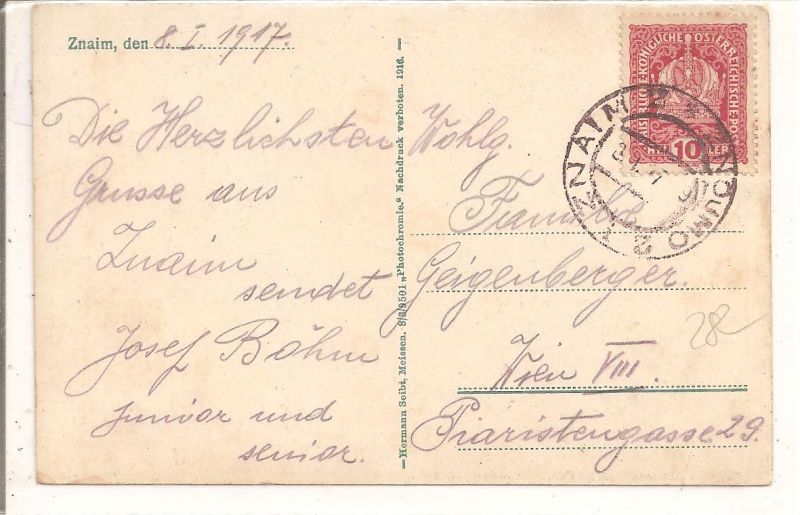 Znaim, den 8. I. 1917.
Die Herzlichsten
Grüsse aus
Znaim
sendet
Josef Böhm
junior und
senior.
Hermann Seibt, Meissen. „Photochromie." Nachdruck verboten. 1916.
Wohlg.
Familie
Geigenberger.
Wien VIII.
Piaristengasse 29.
KÖNIGLICHE ÖSTERREICHISCHE
10
ZNAIM 2
ZNOJMO 2
28